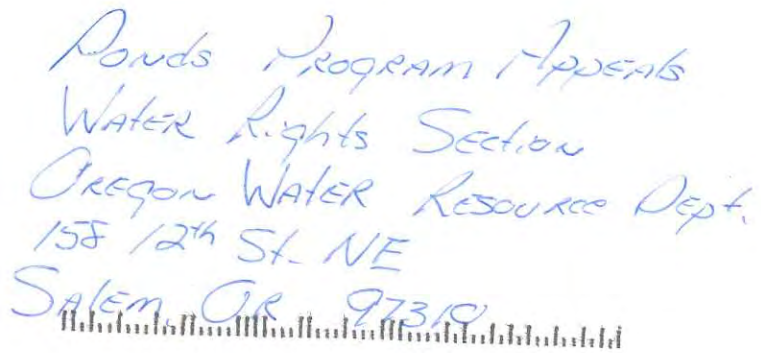 Ponds Program Appeals
Water Rights Section
Oregon Water Resource Dept.
158 12th St. NE
Salem, OR 97310